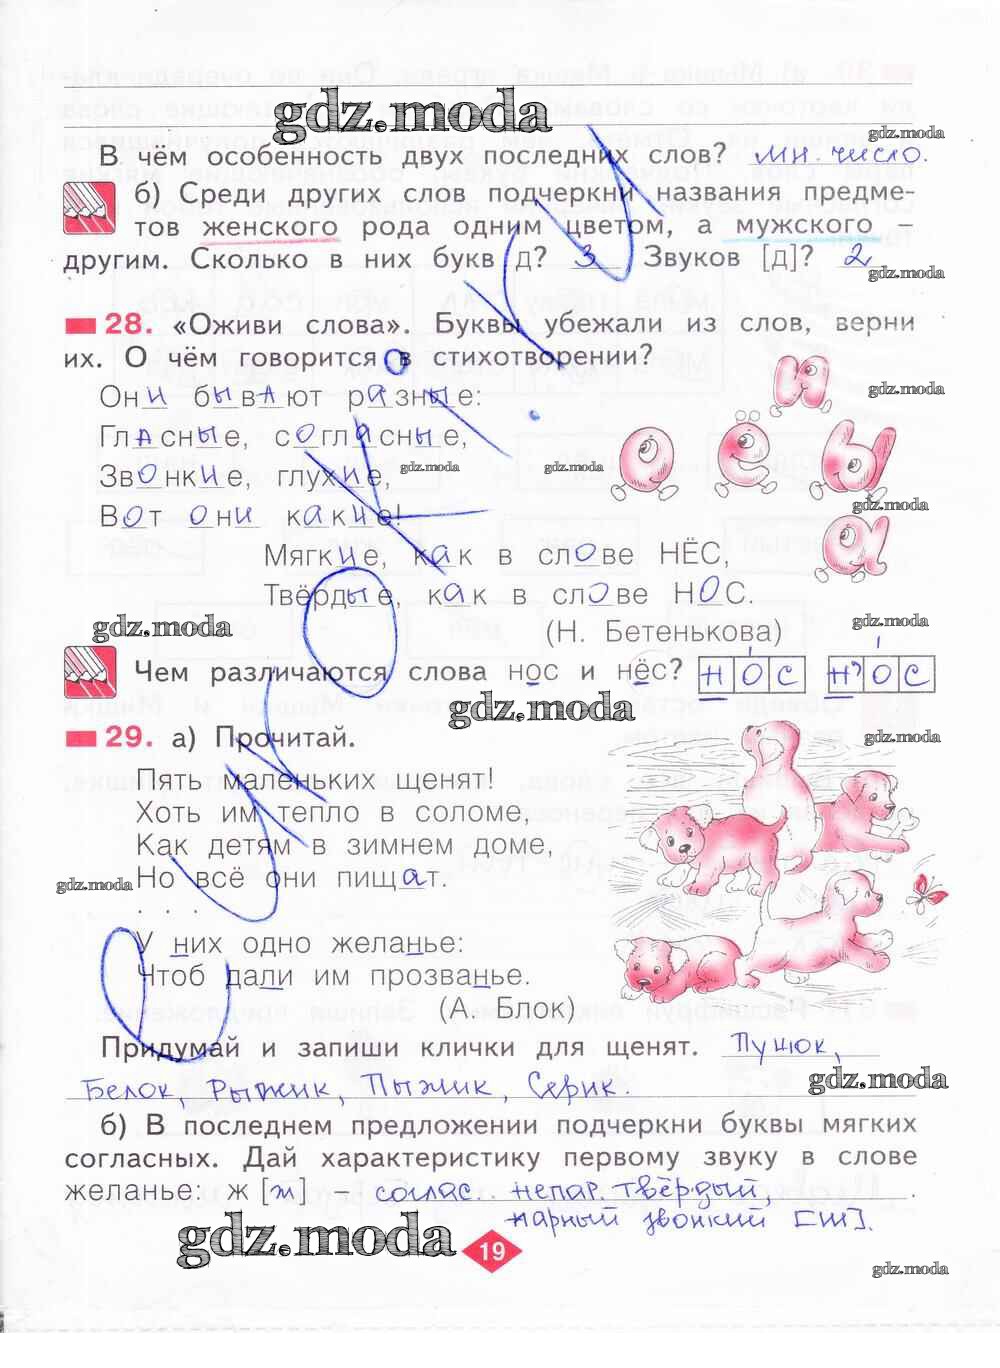 gdz.moda
gdz.moda
В чём особенность двух последних слов? мн. число.
б) Среди других слов подчеркни названия предме-
тов женского рода одним цветом, а мужского –
другим. Сколько в них букв д? 3 Звуков [д]? 2
gdz.moda
28. «Оживи слова». Буквы убежали из слов, верни
их. О чём говорится в стихотворении?
Они бывают разные:
и
gdz.moda
Гласные, согласные,
о е ы
Звонкие, глухие,
gdz.moda
gdz.moda
Вот они какие!
gdz.moda
а
Мягкие, как в слове НЁС,
gdz.moda
Твёрдые, как в слове НОС.
gdz.moda
gdz.moda
(Н. Бетенькова)
Чем различаются слова нос и нёс? нос н'ос
gdz.moda
29. а) Прочитай.
gdz.moda
Пять маленьких щенят!
Хоть им тепло в соломе,
Как детям в зимнем доме,
Но всё они пищат.
gdz.moda
gdz.moda
. . .
У них одно желанье:
Чтоб дали им прозванье.
(А. Блок)
Придумай и запиши клички для щенят. Пушок,
Белок, Рыжик, Пыжик, Серик.
gdz.moda
б) В последнем предложении подчеркни буквы мягких
согласных. Дай характеристику первому звуку в слове
желанье: ж [ж] – соглас. непар. твёрдый,
парный звонкий [ш].
gdz.moda
19
gdz.moda
c uroki.ru